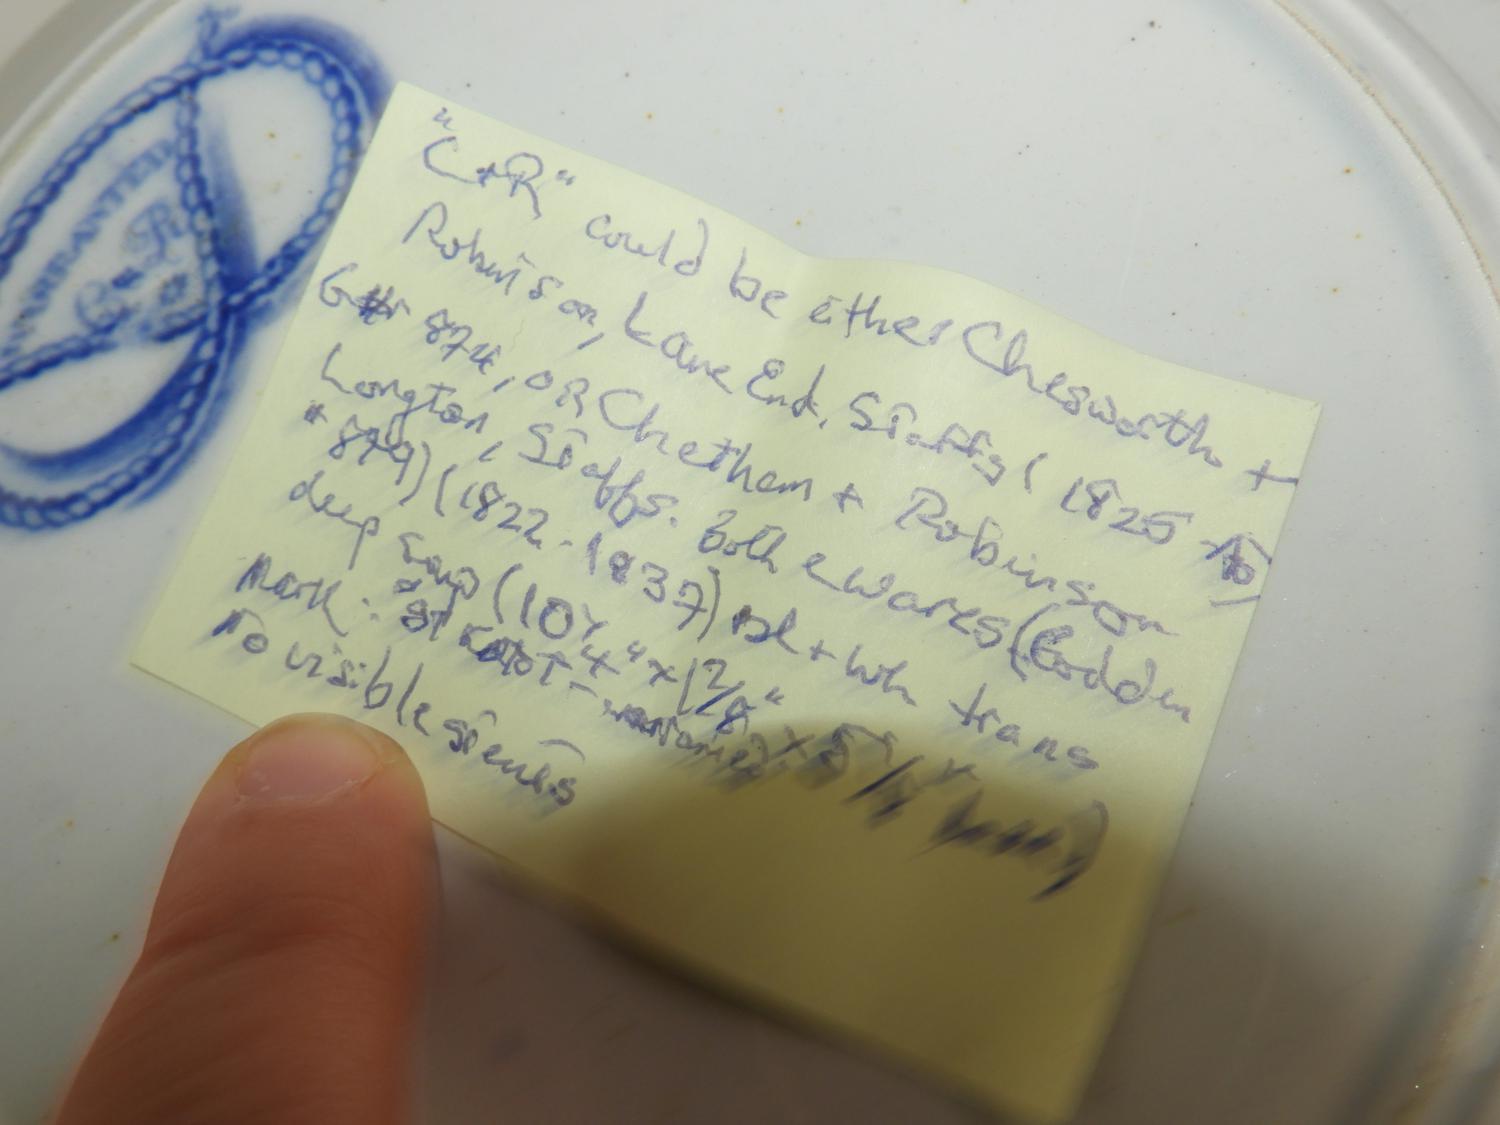 WARRANTED
R
C
"C+R" could be either Chesworth +
Robinson, Lane End, Staffs ( 1825-40)
G# 874, OR Chetham + Robinson
Longton, Staffs. Both ewares (Godden
# 879) (1822-1837) bl + wh trans
deep soup (10 1/4" x 1 2/8"
mark:
no visible stilts